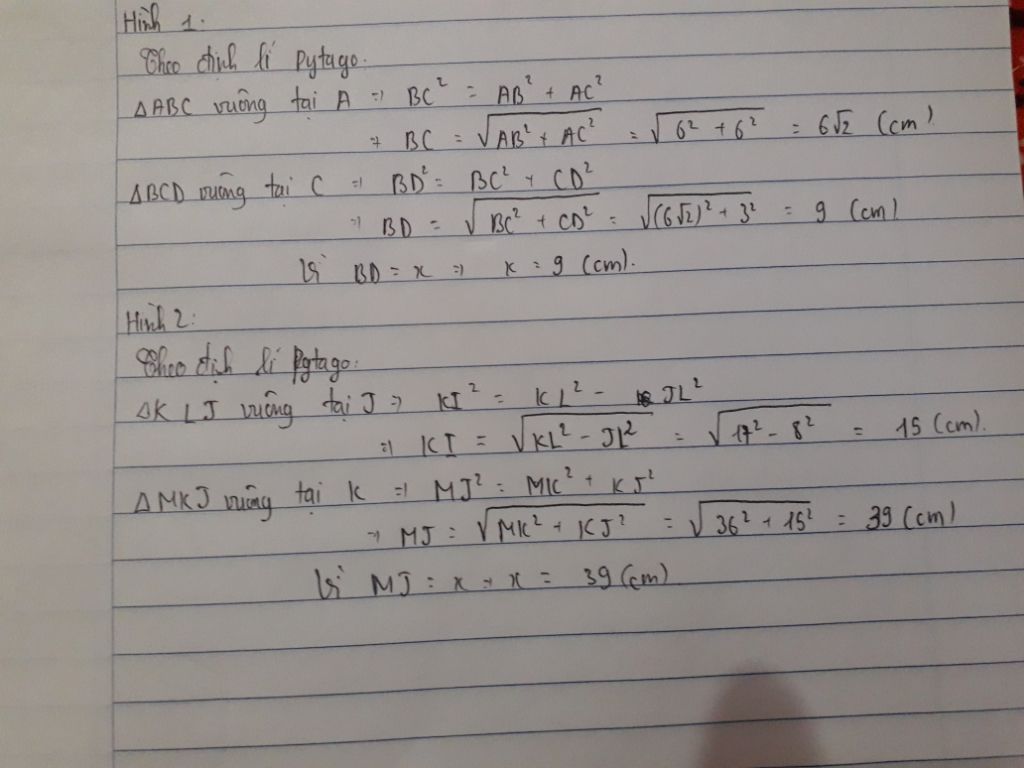 Hình 1:
Theo định lí Pytago.
ΔABC vuông tại A => BC² = AB² + AC²
=> BC = √(AB² + AC²) = √(6² + 6²) = 6√2 (cm)
ΔBCD vuông tại C => BD² = BC² + CD²
=> BD = √(BC² + CD²) = √((6√2)² + 3²) = 9 (cm)
Vì BD = x => x = 9 (cm).
Hình 2:
Theo định lí Pytago:
ΔKLJ vuông tại J => KI² = KL² - JL²
=> KI = √(KL² - JL²) = √(17² - 8²) = 15 (cm).
ΔMKJ vuông tại K => MJ² = MK² + KJ²
=> MJ = √(MK² + KJ²) = √(36² + 15²) = 39 (cm)
Vì MJ = x => x = 39 (cm)